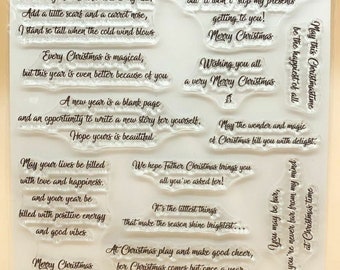 Add a little scarf and a carrot nose,
I stand so tall when the cold wind blows
Every Christmas is magical,
but this year is even better because of you
A new year is a blank page
and an opportunity to write a new story for yourself.
Hope yours is beautiful
May your lives be filled
with love and happiness,
and your year be
filled with positive energy
and good vibes
Merry Christmas
but it won't stop my presents
getting to you!
Merry Christmas
Wishing you all
a very Merry Christmas
May the wonder and magic
of Christmas fill you with delight.
We hope Father Christmas brings you
all you've asked for!
It's the littlest things
that make the season shine brightest...
At Christmas play and make good cheer,
for Christmas comes but once a year
May this Christmastime
be the happiest of all
You may be far,
but you're never far from my mind
at Christmas time